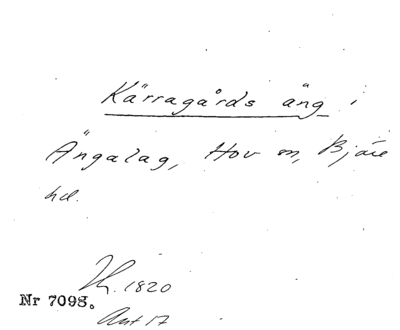 Kärragårds äng i
Ängalag, Hov sn, Bjäre
hd.
Kr. 1820
Nr 7098.
Akt 17